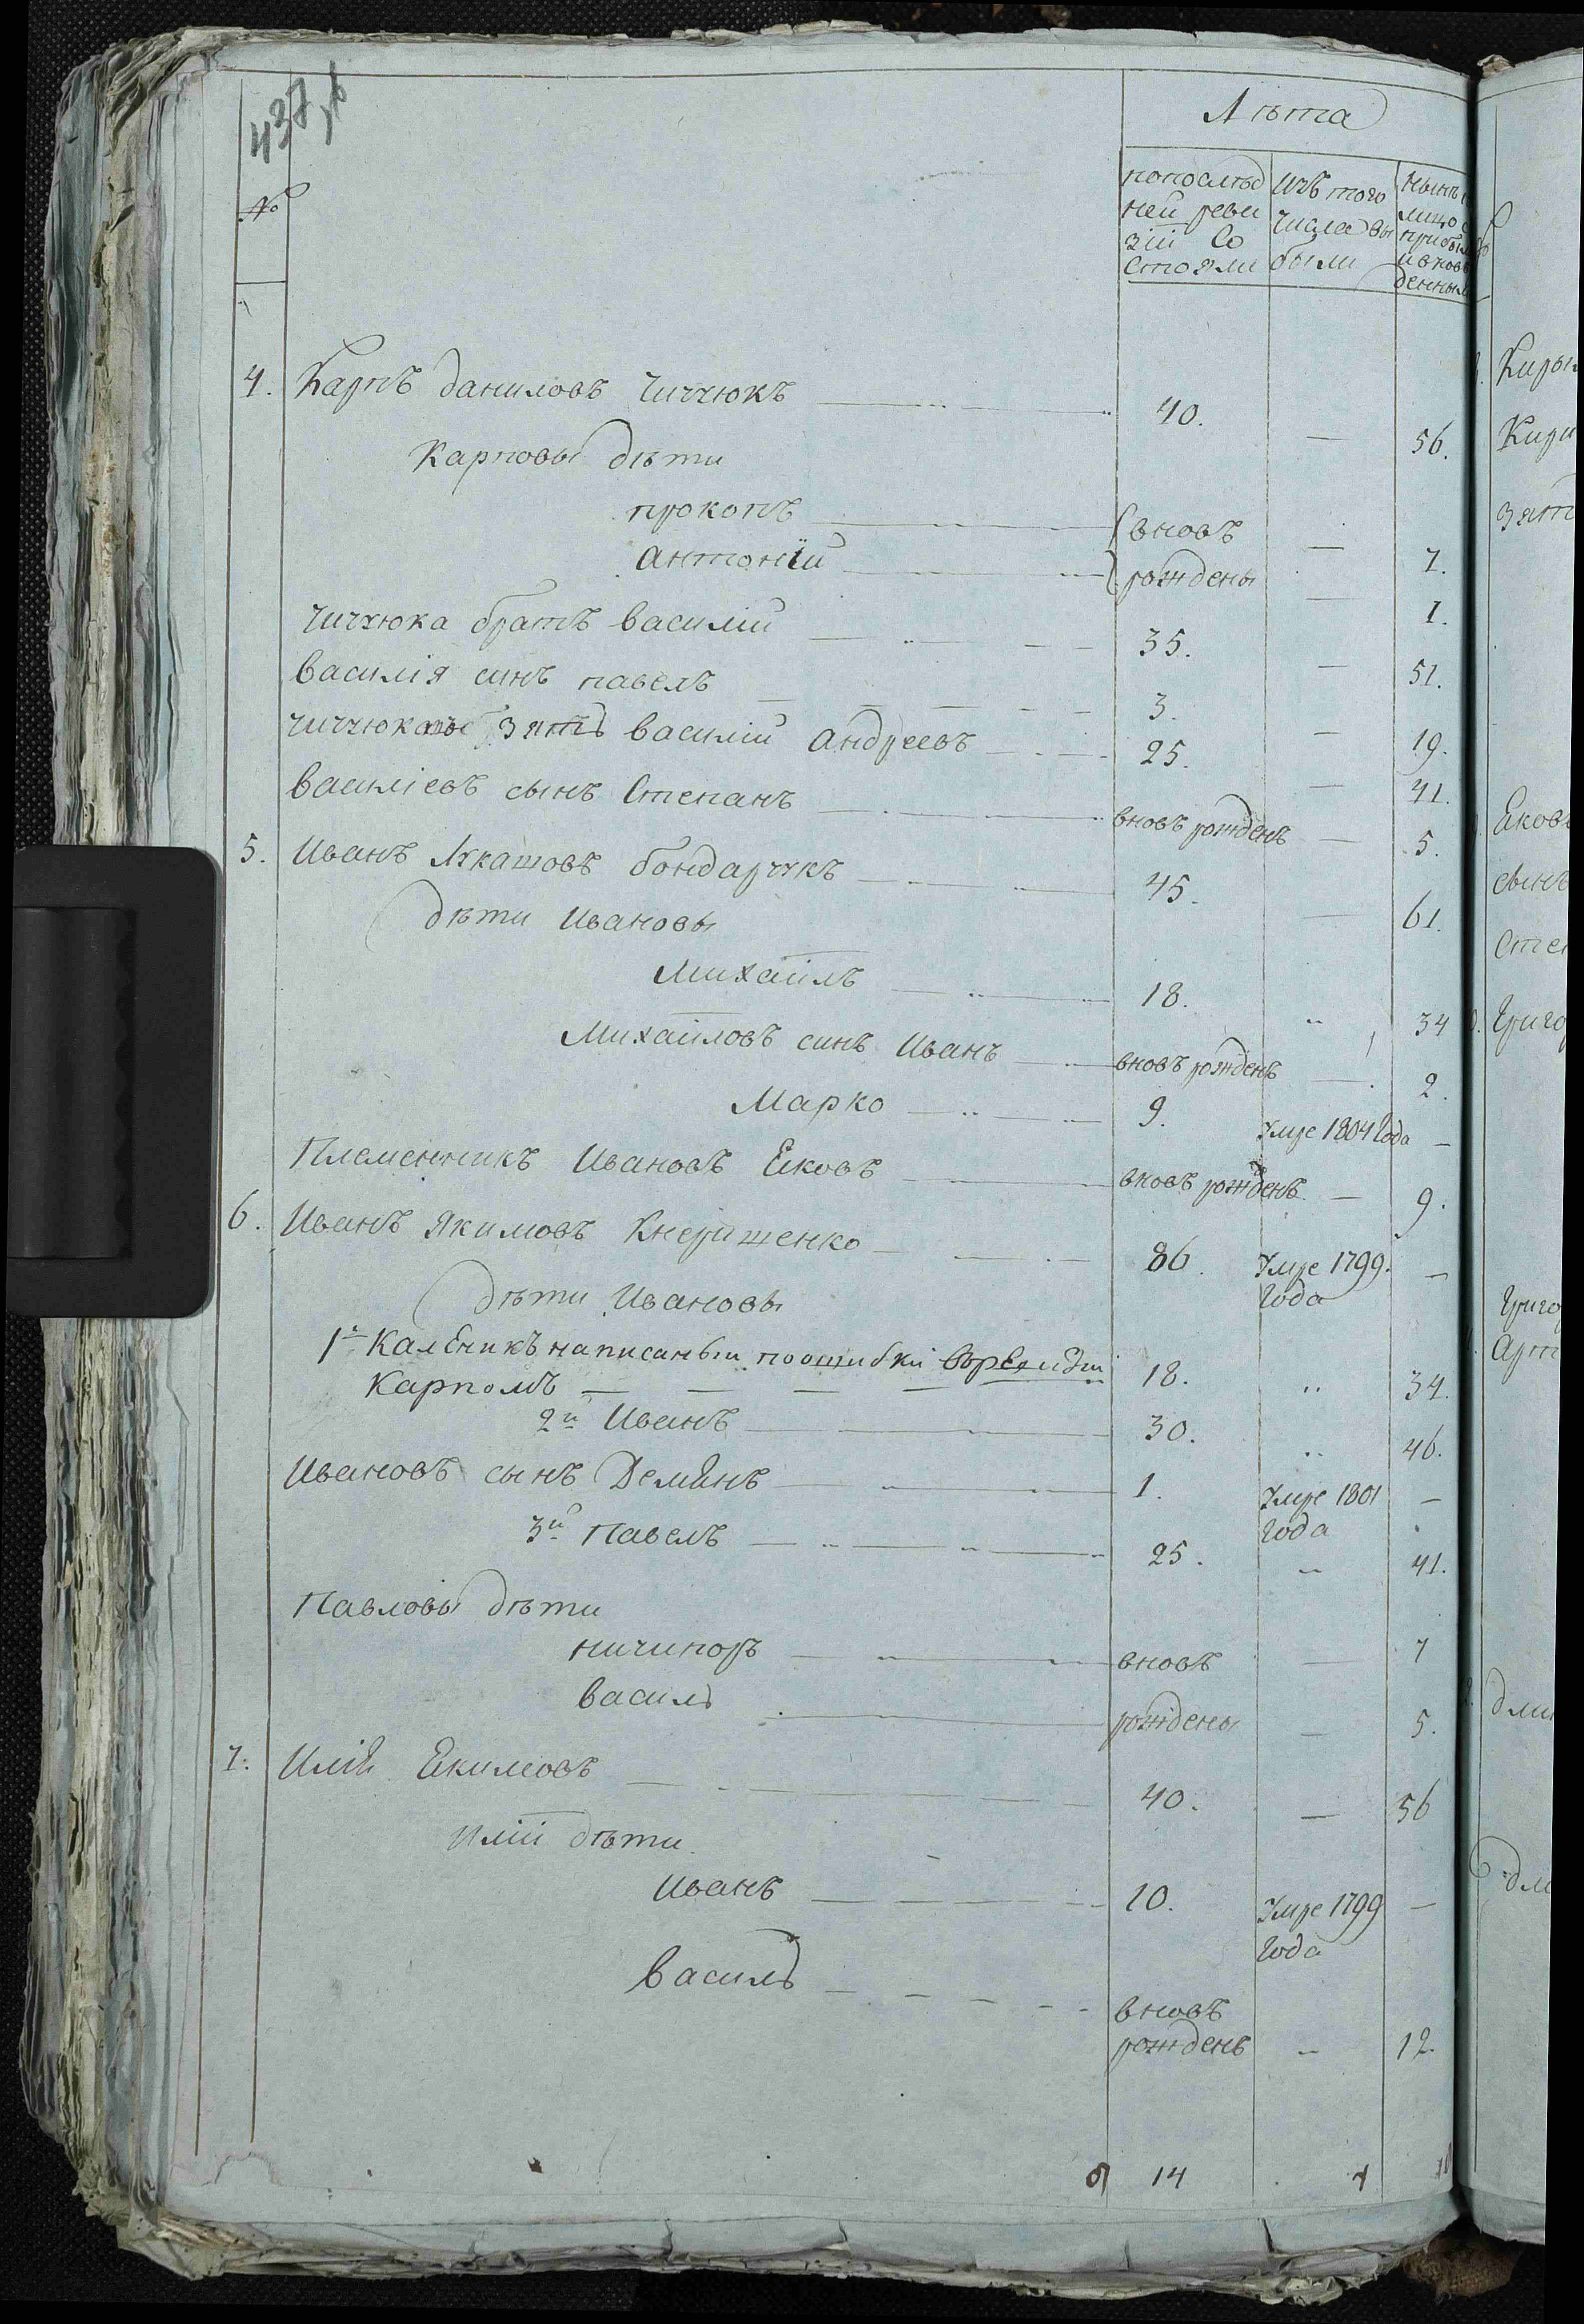 437
№
Лѣта
попослѣд
ней реви
зіи Со
стояли
Изъ того
числа вы
были
4. Карпъ даниловъ Чиччюкъ 40. — 56.
Карповы дѣти
прокопъ вновъ — 7.
Антоній рождены — 1.
Чиччюка братъ василій 35. — 51.
василія синъ павелъ 3. — 19.
Чиччюковъ зять василій Андреевъ 25. — 41.
василіевъ сынъ Степанъ вновъ рожденъ — 5.
5. Иванъ Лукашовъ бондарукъ 45. — 61.
дѣти Ивановы
Михаилъ 18. „ 34
Михаиловъ синъ Иванъ вновъ рожденъ — 2.
Марко 9. Умре 1804 года —
Племенникъ Ивановъ Ековъ вновъ рожденъ — 9.
6. Иванъ Якимовъ 86. Умре 1799. —
года
дѣти Ивановы
1й Каленикъ написаный поошибки
Карпомъ 18. „ 34.
2й Иванъ 30. „ 46.
Ивановъ сынъ Демянъ 1. Умре 1801 —
года
3й Павелъ 25. „ 41.
Павловы дѣти
ничипоръ вновъ — 7
василь рождены — 5.
7. Илія Екимовъ 40. — 56
Иліи дѣти
Иванъ 10. Умре 1799 —
года
василь вновъ
рожденъ „ 12.
14 4